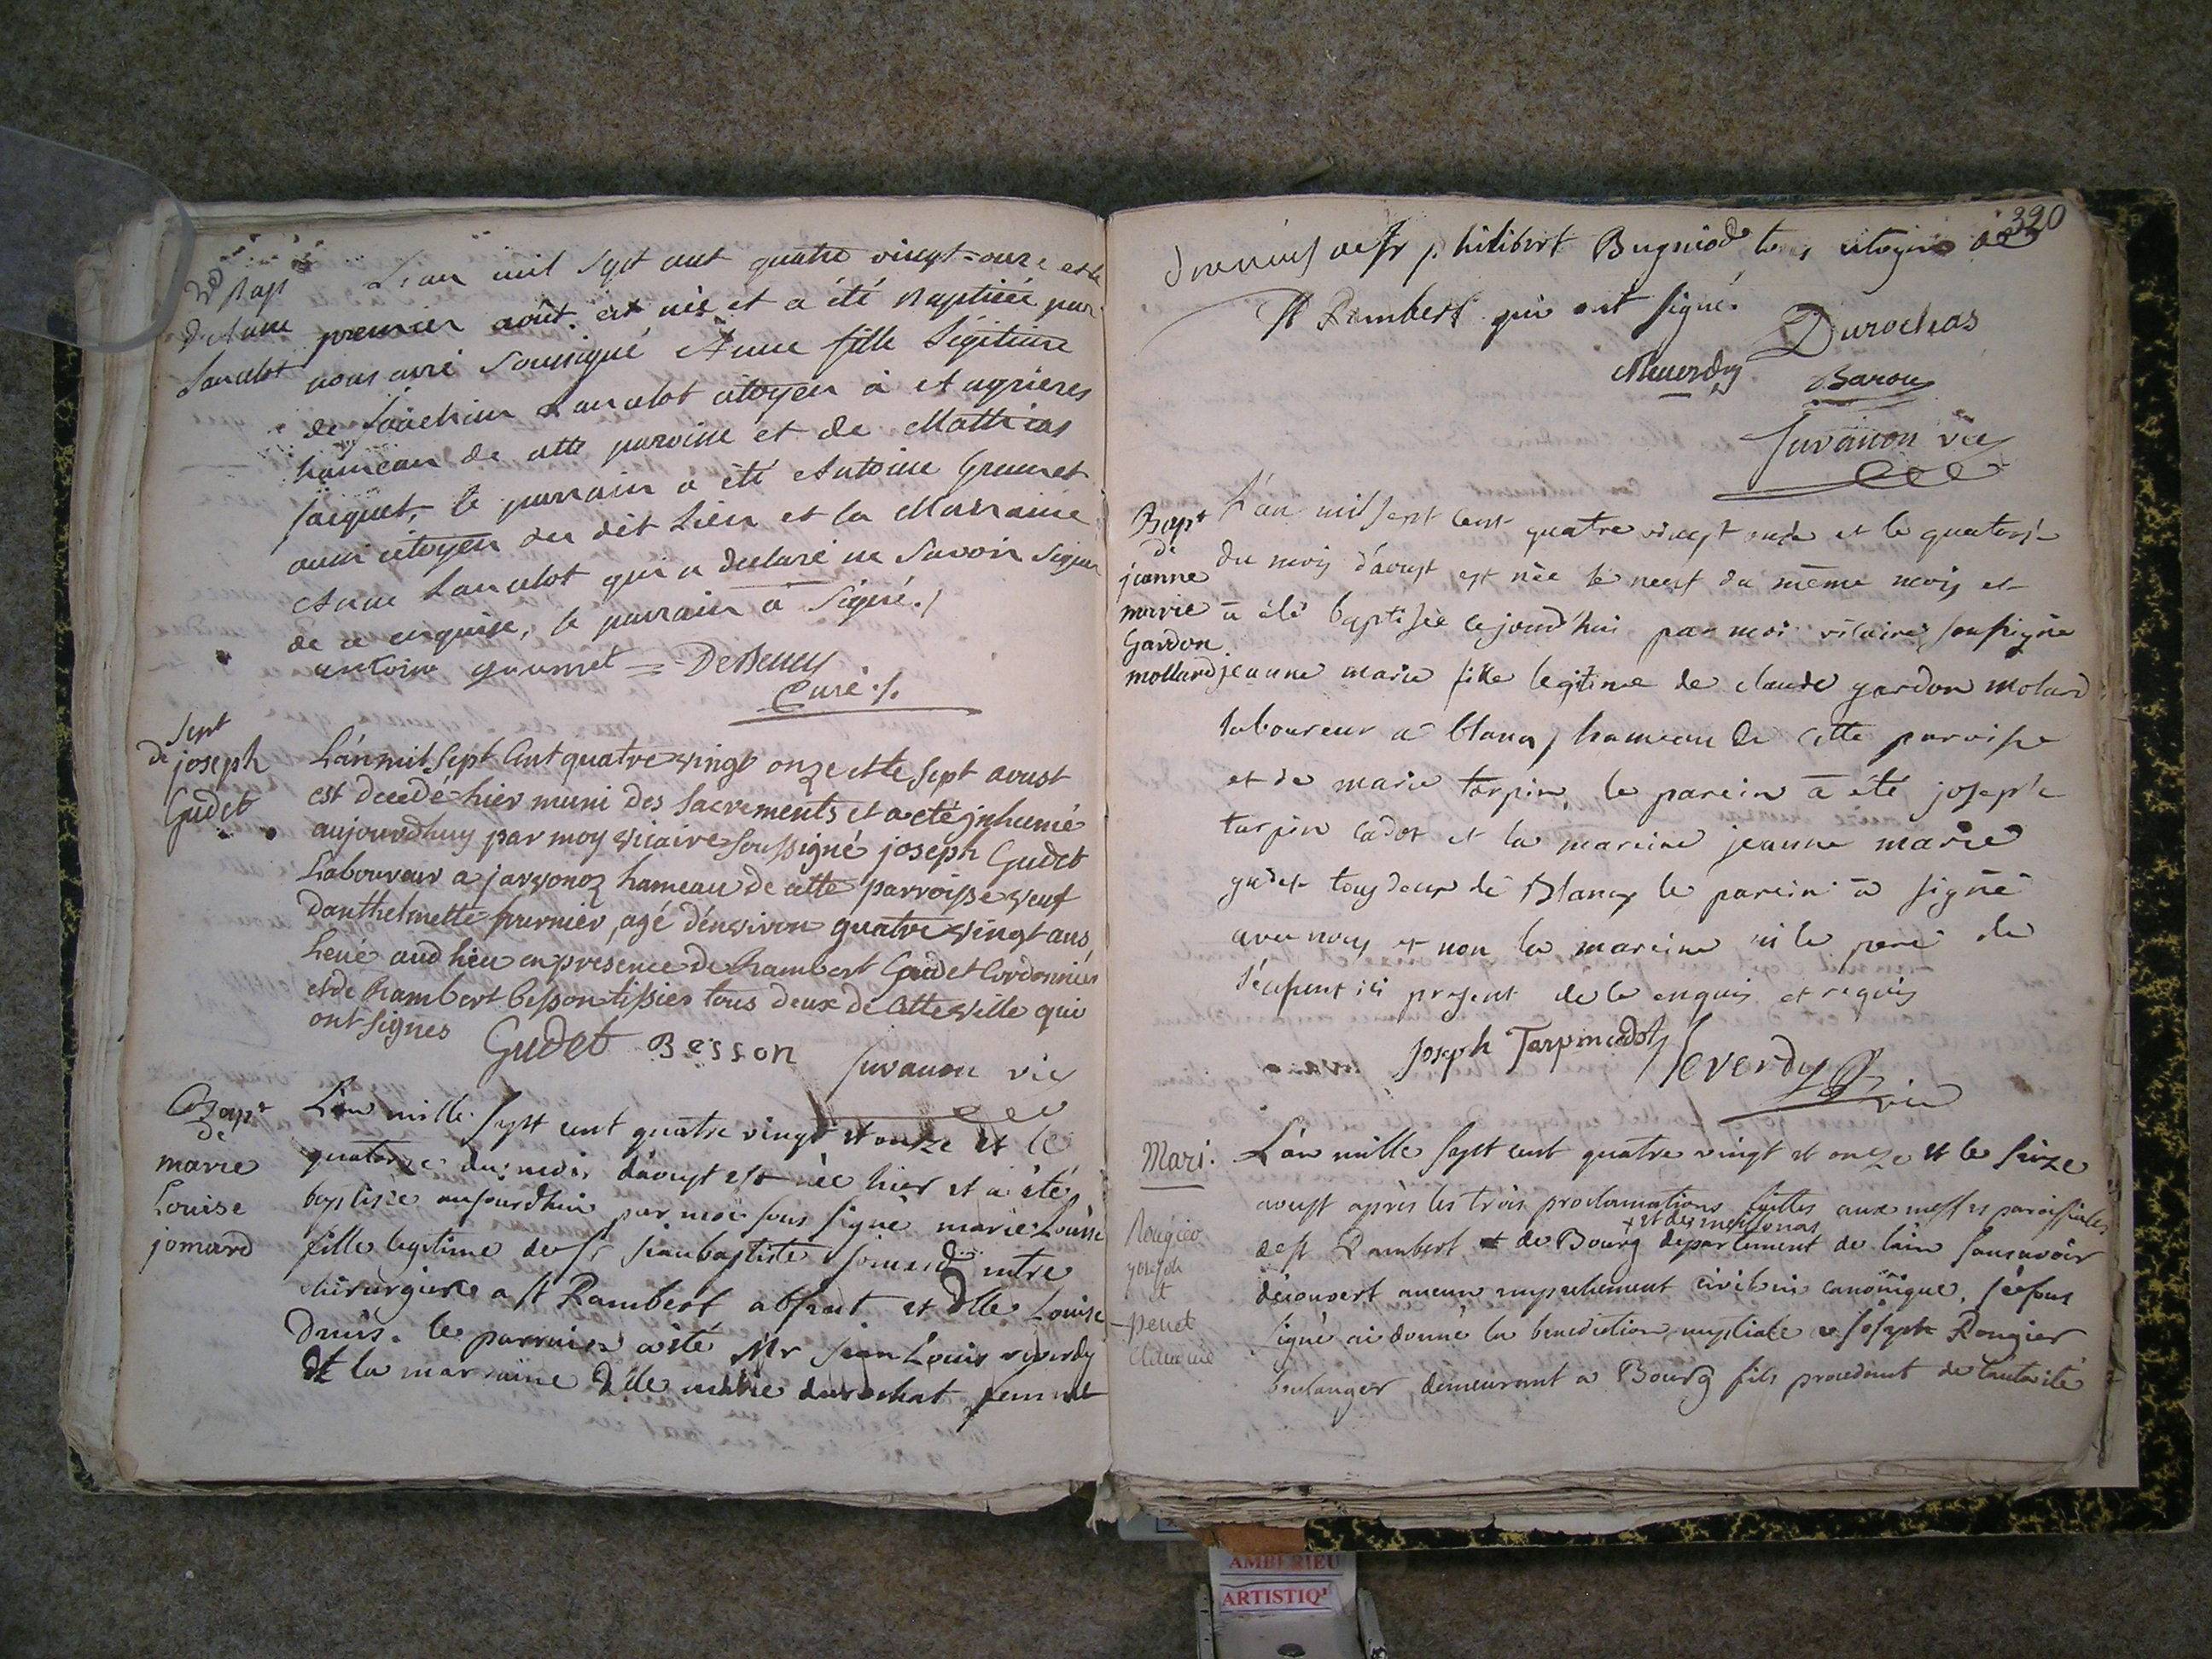 Bap
d'Anne
Lancelot
L'an mil sept cent quatre vingt-onze et le
premier août est née et a été Baptisée par
nous curé soussigné Anne fille légitime
de Joachim Lancelot citoyen à Angrieres
hameau de cette paroisse et de Mathias
Jacquet, le parrain a été Antoine Grumet
aussi citoyen du dit Lieu et la Marraine
Anne Lancelot qui a declaré ne savoir signer
de ce enquise, le parrain a signé./
antoine grumet = DeBeney
Curé ./.
Sept
de joseph
Gudet
L'an mil sept Cent quatre vingt onze et le sept aoust
est decedé hier muni des sacrements et a eté jnhumé
aujourdhuy par moy vicaire soussigné joseph Gudet
Laboureur a javornoz hameau de cette parroisse veuf
danthelmette fournier, agé d'environ quatre vingt ans
aud lieu en presence de Rambert Gudet Cordonnier
et de Rambert besson tissier tous deux de Cette ville qui
ont signes Gudet Besson
Juvanon vic
Bapt
de
marie
Louise
jomard
L'an mille sept cent quatre vingt et onze et le
quatorze du mois d'aoust est née hier et a été
baptisée aujourdhui par moi sous signé marie Louise
fille legitime de sr jean baptiste jomard mtre
chirurgien a st Rambert absent et dlle Louise
Druis. le parrain a été Mr jean Louis reverdy
et la marraine Dlle marie durochat femme
390
Bugniod tous citoyens de
St Rambert qui ont signé.
Durochas
Reverdy
Baron
Juvanon vic
Bapt
de
jeanne
marie
Gardon
mollard
L'an mil sept cent quatre vingt onze et le quatorze
du mois d'aoust est née le neuf du même mois et
a été baptisée cejourd'hui par moi vicaire soussigné
jeanne marie fille legitime de claude gardon molard
laboureur a blanaz hameau de Cette paroisse
et de marie tarpin, le parein a été joseph
tarpin cadot et la mareine jeanne marie
gudet tous deux de Blanaz le parein a signé
avec nous et non la mareine ni le pere de
l'enfent ici present de ce enquis et requis
Joseph Tarpin cadot Reverdy
vic
Mari.
Rougier
joseph
et
penet
L'an mille sept cent quatre vingt et onze et le seize
aoust après les trois proclamations faittes aux messes paroissiales
+ et de meyssonas
de st Rambert, et de Bourg departement de lain sans avoir
découvert aucun empechement civil ni canonique, je sous
signé ai donné la benediction nuptiale a joseph Rougier
boulanger demeurant a Bourg fils procedant de l'autorité
AMBERIEU
ARTISTIQ'